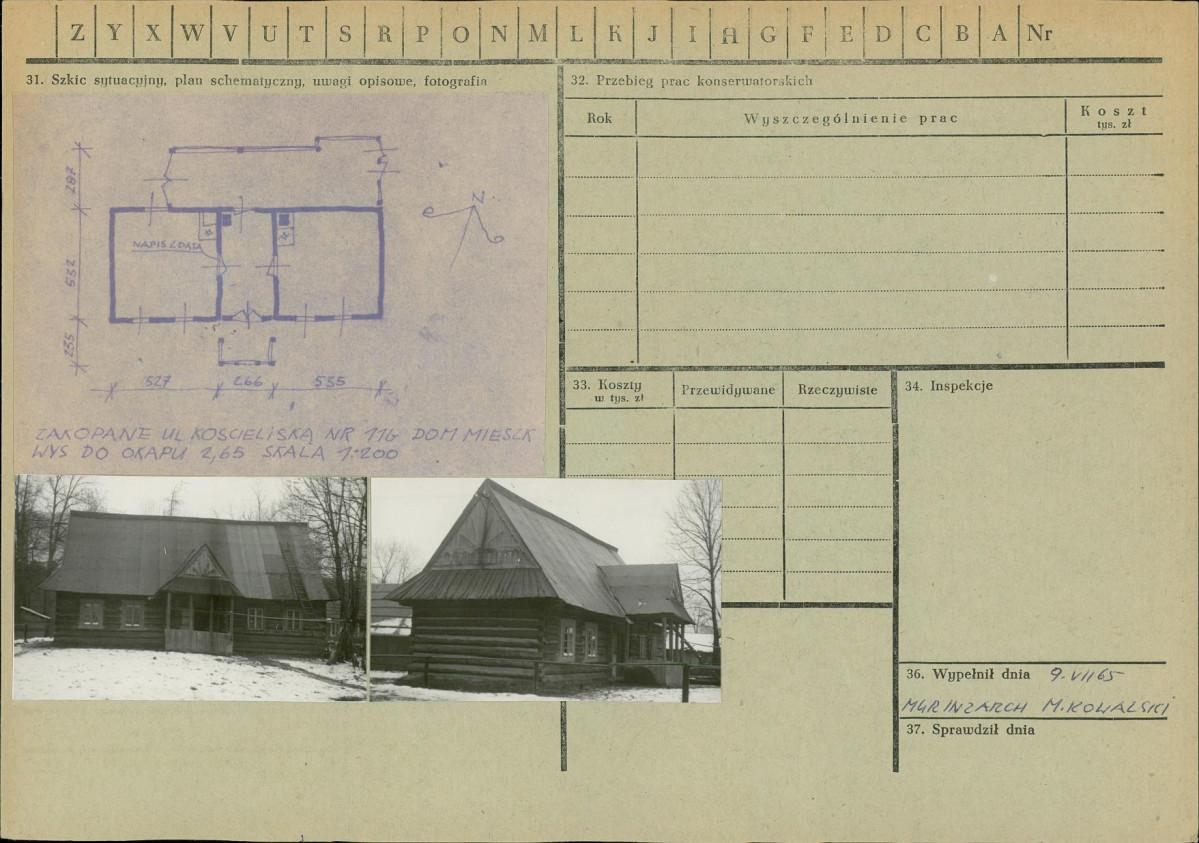 Z Y X W V U T S R P O N M L K J I H G F E D C B A Nr
31. Szkic sytuacyjny, plan schematyczny, uwagi opisowe, fotografia
287
532
235
NAPIS Z DATĄ
N
527 266 535
ZAKOPANE UL KOŚCIELISKA NR 116 DOM MIESZK
WYS DO OKAPU 2,65 SKALA 1:200
32. Przebieg prac konserwatorskich
Rok Wyszczególnienie prac Koszt
tys. zł
33. Koszty
w tys. zł
Przewidywane Rzeczywiste
34. Inspekcje
36. Wypełnił dnia 9.VII65
MGR INZ ARCH M. KOWALSKI
37. Sprawdził dnia